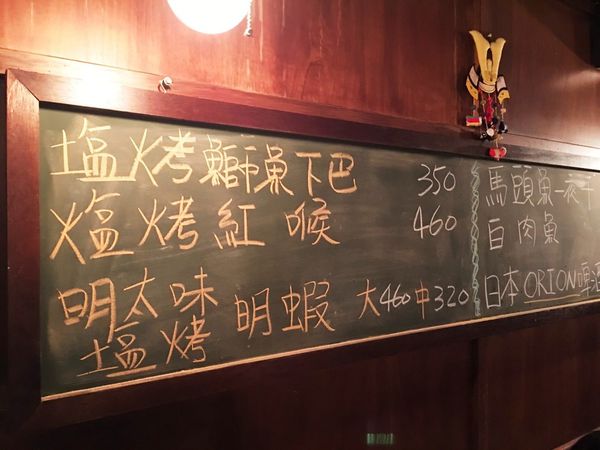 塩烤鰤魚下巴 350
塩烤紅喉 460
明太味
塩烤 明蝦 大460中320
馬頭魚一夜干
白肉魚
日本ORION啤酒